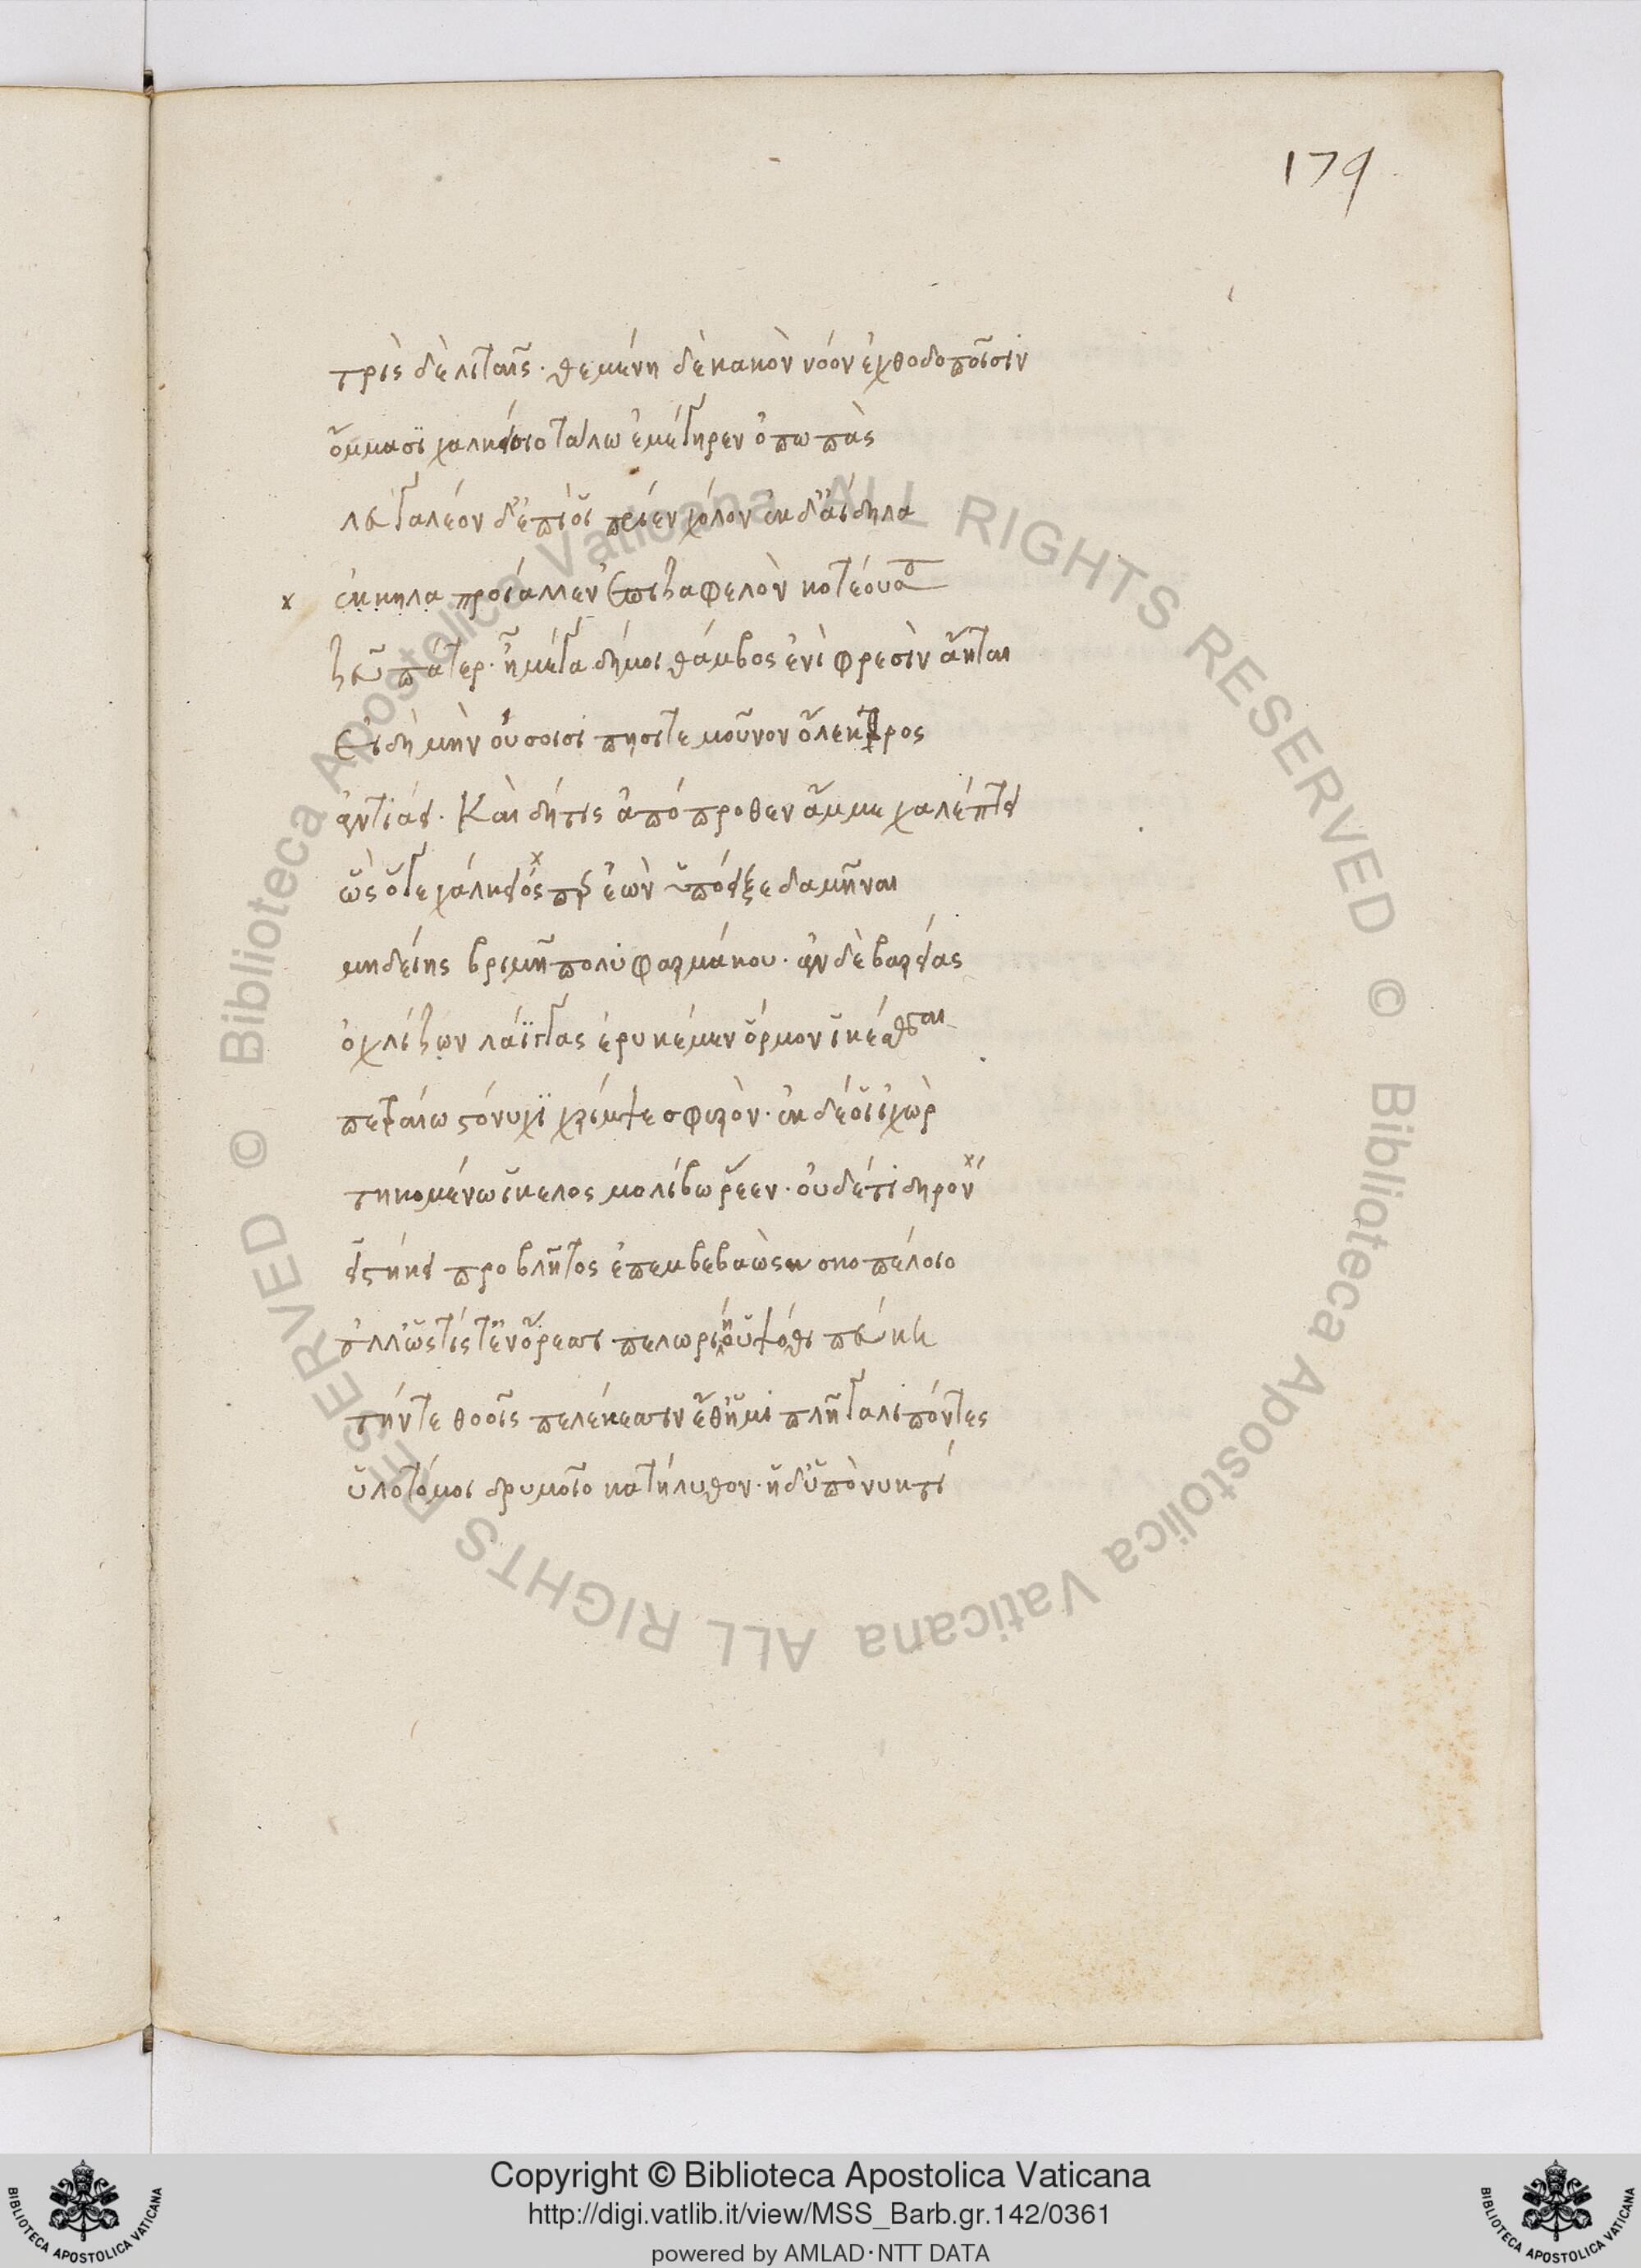 179
τρὶς δὲ λιταῖς· θεμένη δὲ κακὸν νόον ἐχθοδοποῖσιν
ὄμμασι χαλκείοιο ταλω ἐμέγηρεν ὀπωπὰς
λευγαλέον δ' ἐπὶ οἷ πρῖεν χόλον ἐκ δ' ἀίδηλα
x ἐκκηλα προίαλλεν ἐπιζαφελὸν κοτέουσα
ζεῦ πάτερ· ἦ μέγα δή μοι θάμβος ἐνὶ φρεσὶν ἄηται
Εἰ δὴ μὴν οὐ σοισι πησιτε μοῦνον ὄλεκτρος
ἀντιάει. Καὶ δή τις ἀπόπροθεν ἄμμε χαλέπτει
ὣς ὅγε χάλκειός περ ἐὼν ὑπόειξε δαμῆναι
μηδείης βρίμη πολυφαρμάκου· ἂν δὲ βαρείας
ὀχλίζων λάϊγγας ἐρυκέμεν ὅρμον ἱκέσθαι
πετραίω στόνυχι χρίμψε σφυρὸν· ἐκ δέ οἱ ἰχὼρ
τηκομένω ἴκελος μολίβω ῥέεν· οὐδέ τι δηρὸν
εἱστήκει προβλῆτος ἐπεμβεβαὼς σκοπέλοιο
ἀλλ' ὥς τίς τ' ἐν ὄρεσσι πελωρίη ὑψόθι πεύκη
τήν τε θοοῖς πελέκεσσιν ἔθ' ἡμιπλῆγα λιπόντες
ὑλοτόμοι δρυμοῖο κατήλυθον· ἡ δ' ὑπὸ νυκτί
© Biblioteca Apostolica Vaticana ALL RIGHTS RESERVED © Biblioteca Apostolica Vaticana ALL RIGHTS RESERVED
BIBLIOTECA APOSTOLICA VATICANA
Copyright © Biblioteca Apostolica Vaticana
http://digi.vatlib.it/view/MSS_Barb.gr.142/0361
powered by AMLAD·NTT DATA
BIBLIOTECA APOSTOLICA VATICANA